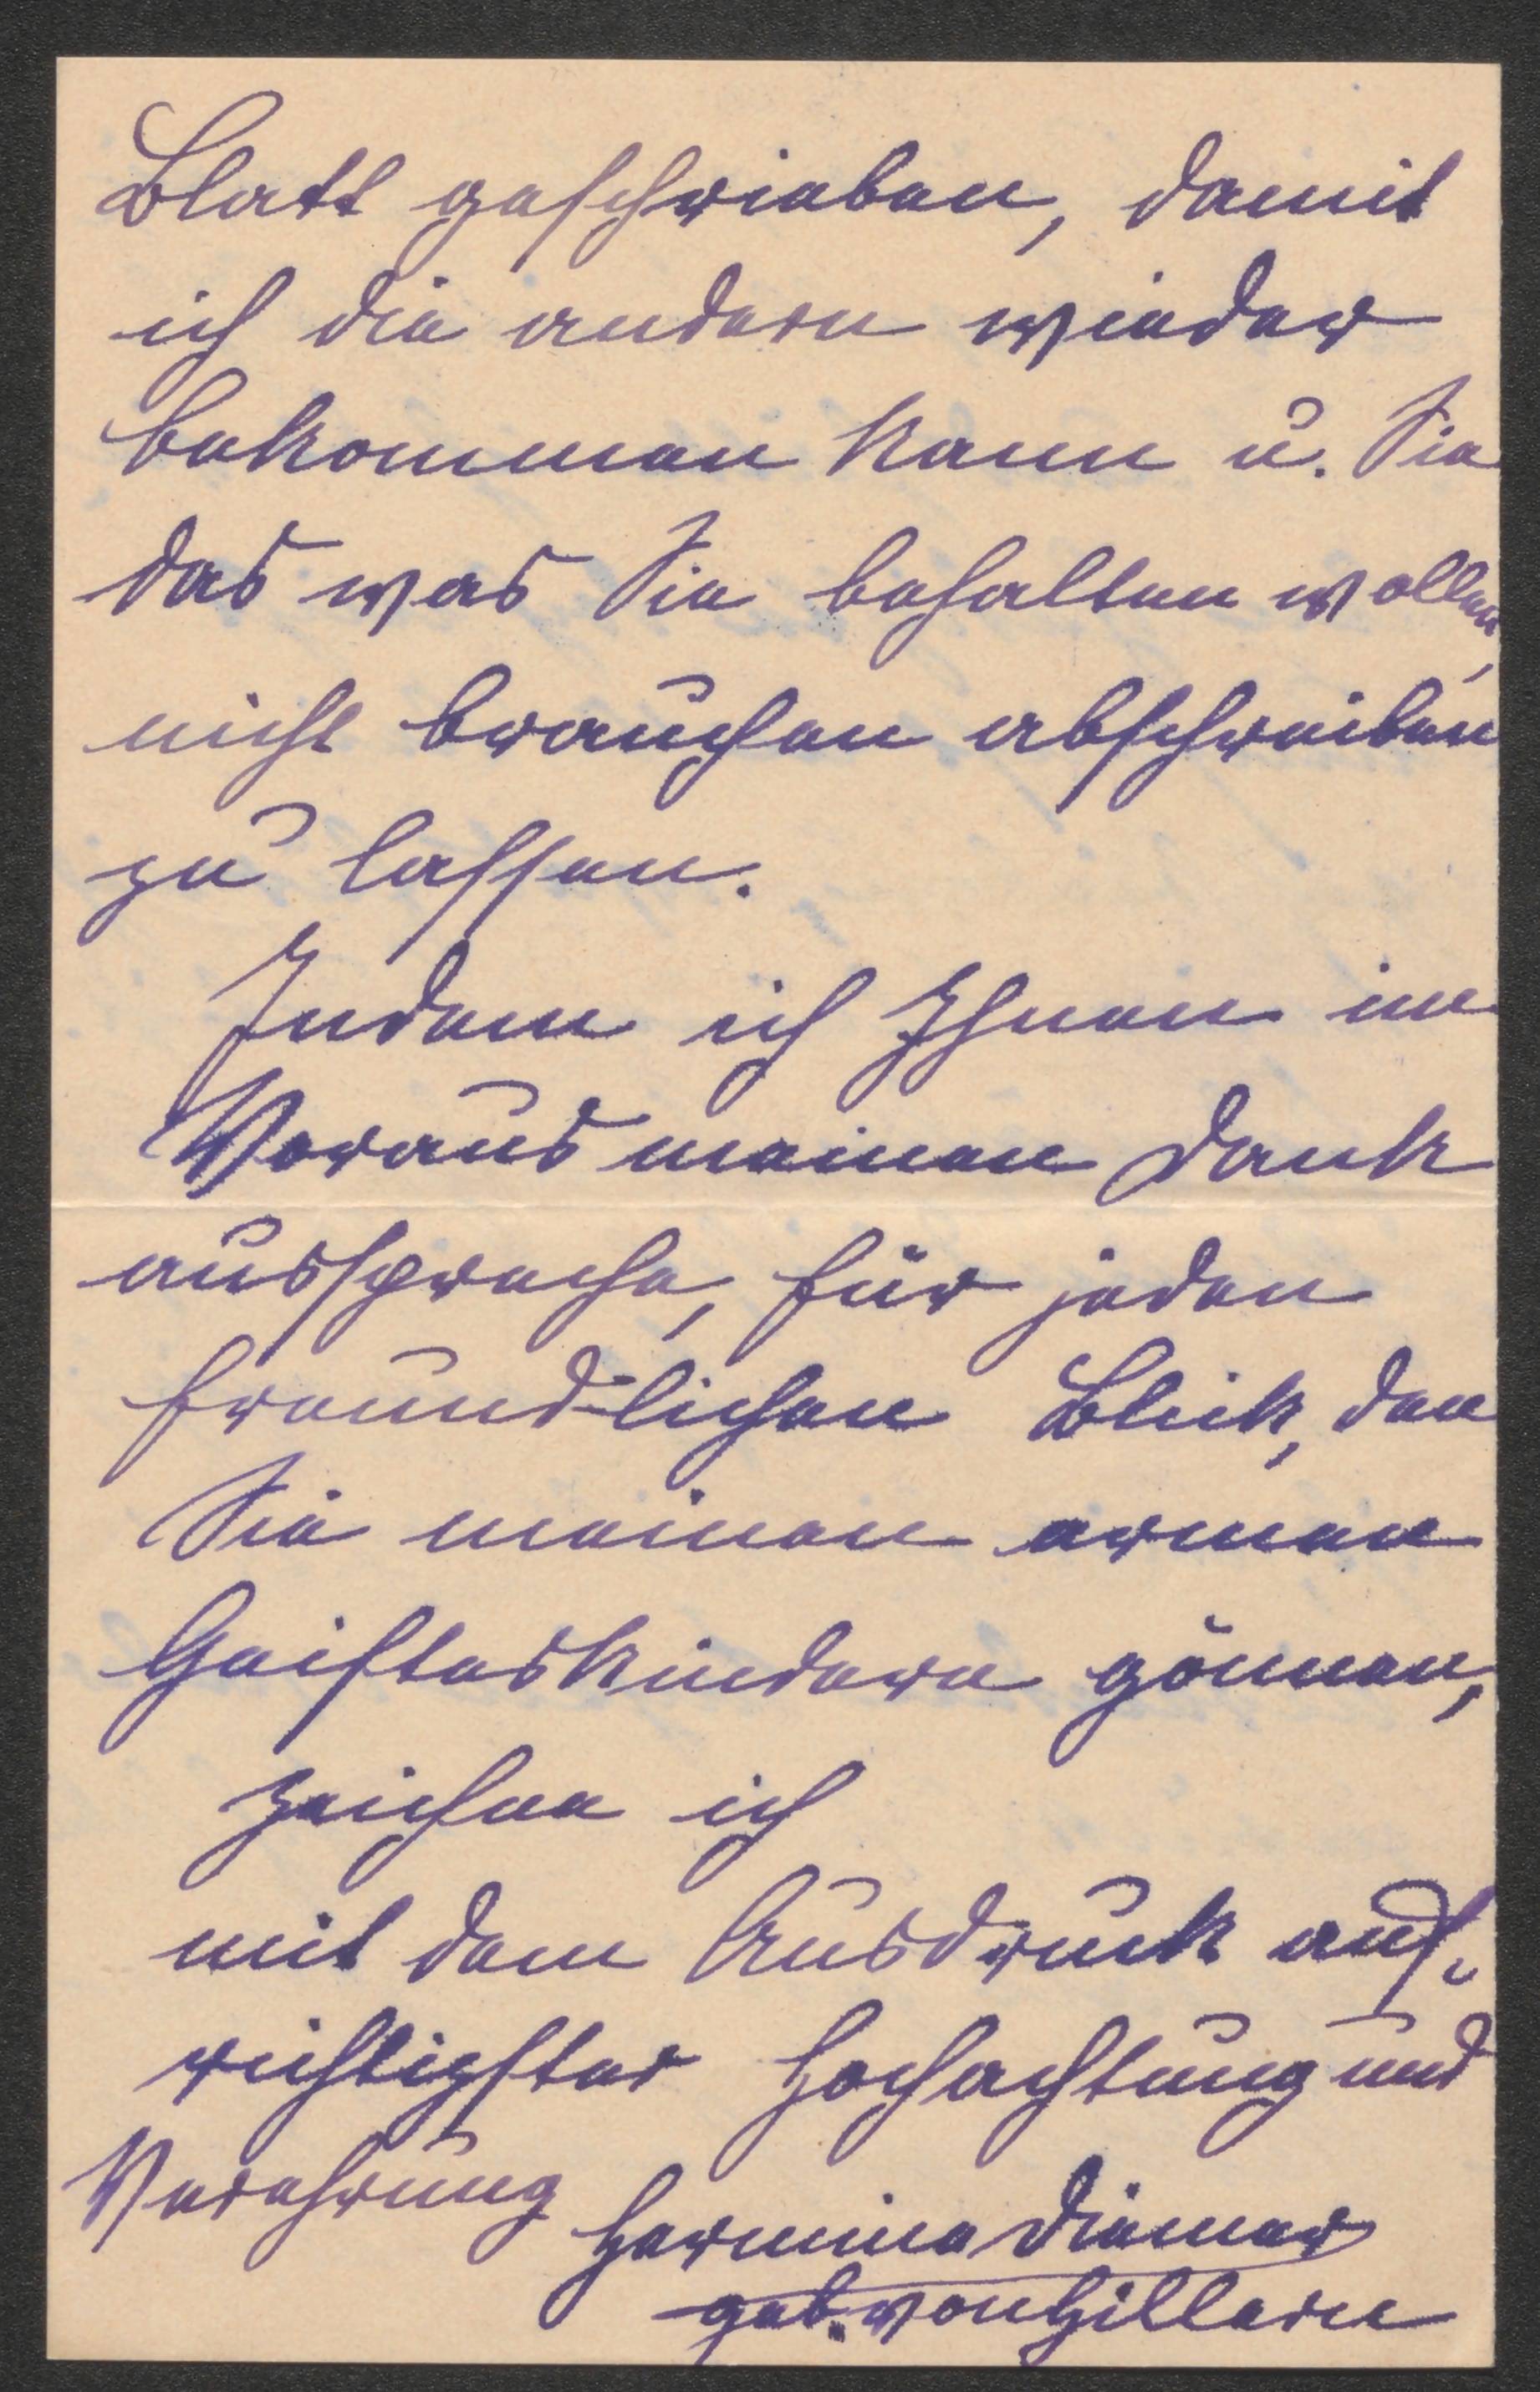 Blatt geschrieben, damit
ich die andern wieder
bekommen kann u. Sie
das was Sie behalten wollen,
nicht brauchen abschreiben
zu lassen.
Indem ich Ihnen im
Voraus meinen Dank
ausspreche, für jeden
freundlichen Blick, den
Sie meinen armen
Geisteskindern gönnen,
zeichne ich
mit dem Ausdruck auf-
richtigster Hochachtung und
Verehrung
Hermine Diemer
geb. von Hillern